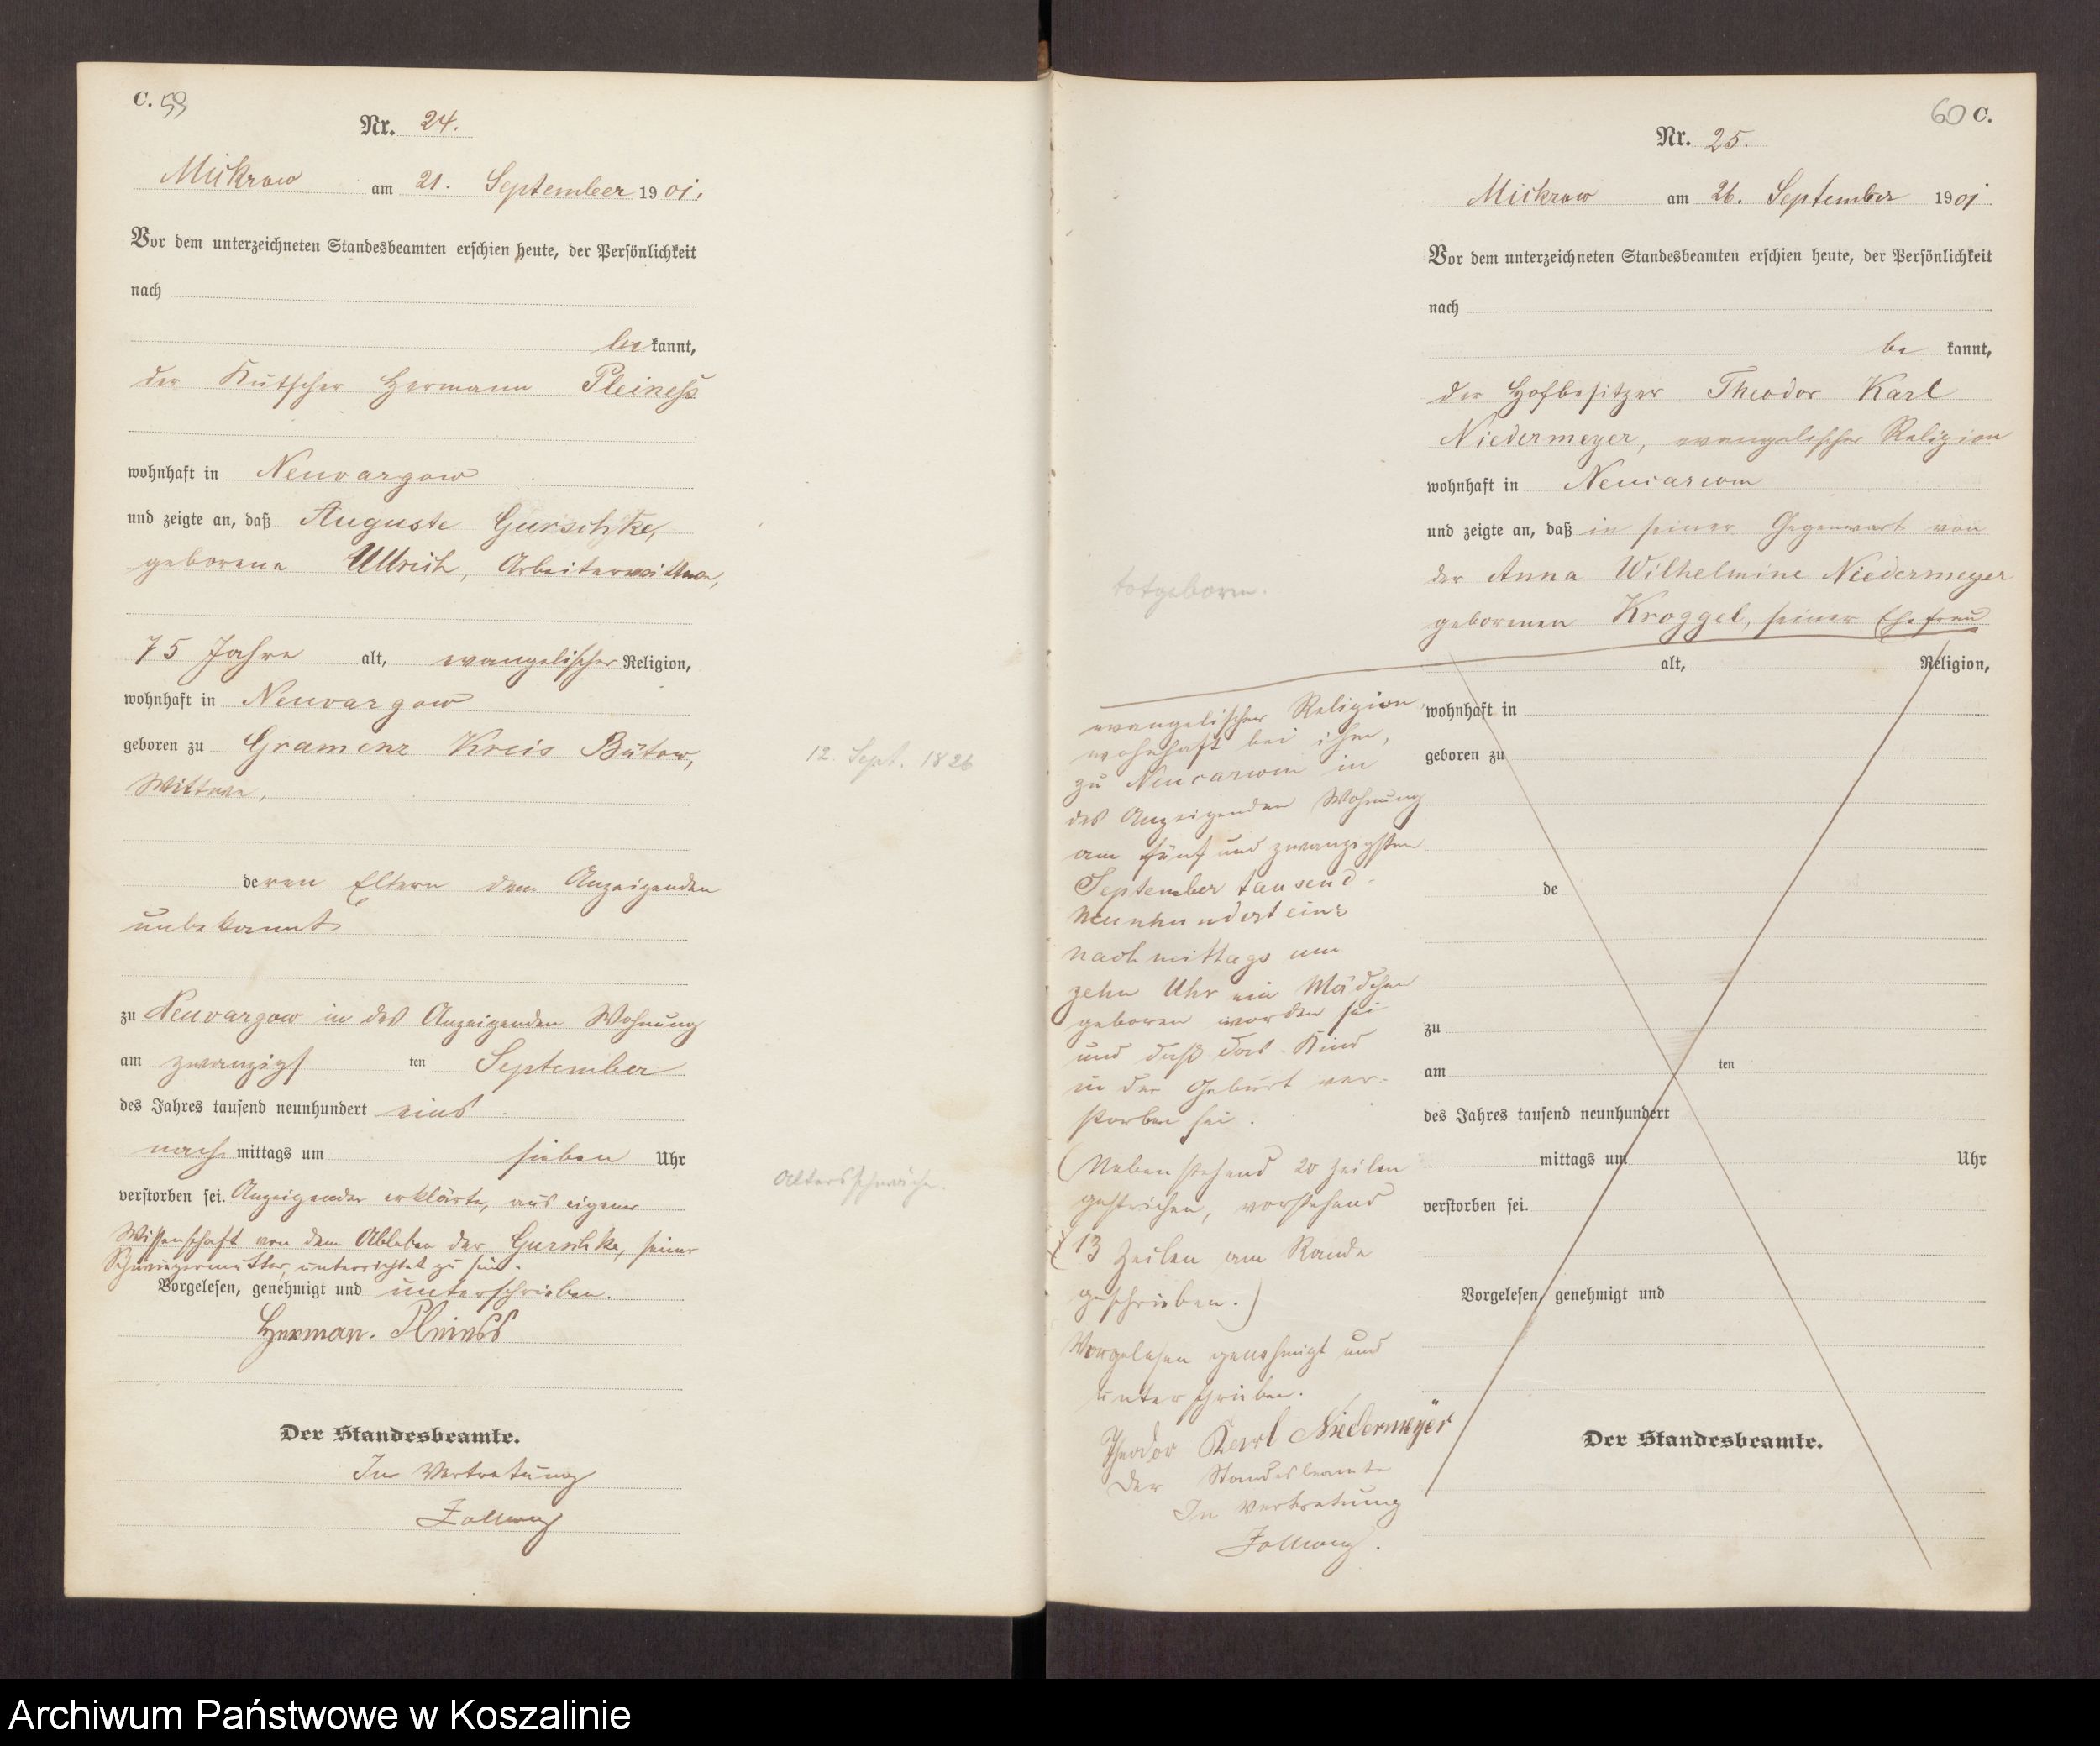 C. 59
Nr. 24.
Mickrow am 21. September 1901.
Vor dem unterzeichneten Standesbeamten erschien heute, der Persönlichkeit
nach
be kannt,
der Kutscher Hermann Pleiness
wohnhaft in Neuvargow
und zeigte an, daß Auguste Gurschke,
geborene Ullrich, Arbeiterwittwe,
75 Jahre alt, evangelischer Religion,
wohnhaft in Neuvargow
geboren zu Gramenz Kreis Bütow,
12. Sept. 1826
Wittwe,
deren Eltern dem Anzeigenden
unbekannt
zu Neuvargow in des Anzeigenden Wohnung
am zwanzigsten September
des Jahres tausend neunhundert eins
nach mittags um sieben Uhr
Altersschwäche.
verstorben sei. Anzeigender erklärte, aus eigener
Wissenschaft von dem Ableben der Gurschke, seiner
Schwiegermutter, unterrichtet zu sein.
Vorgelesen, genehmigt und unterschrieben.
Herman. Pleiness
Der Standesbeamte.
In Vertretung
60 C.
Nr. 25.
Mickrow am 26. September 1901
Vor dem unterzeichneten Standesbeamten erschien heute, der Persönlichkeit
nach
be kannt,
der Hofbesitzer Theodor Karl
Niedermeyer, evangelischer Religion
wohnhaft in
und zeigte an, daß in seiner Gegenwart von
der Anna Wilhelmine Niedermeyer
totgeboren.
geborenen Kroggel, seiner Ehefrau
alt, Religion,
wohnhaft in
geboren zu
de
zu
am ten
des Jahres tausend neunhundert
mittags um Uhr
verstorben sei.
Vorgelesen, genehmigt und
Der Standesbeamte.
evangelischer Religion,
wohnhaft bei ihm,
zu in
des Anzeigenden Wohnung
am fünf und zwanzigsten
September tausend
neunhundert eins
nachmittags um
zehn Uhr ein Mädchen
geboren worden sei
und daß das Kind
in der Geburt ver-
storben sei.
(Nebenstehend 20 Zeilen
gestrichen, vorstehend
13 Zeilen am Rande
geschrieben.)
Vorgelesen genehmigt und
unterschrieben.
Theodor Karl Niedermeyer
Der Standesbeamte
In Vertretung
Archiwum Państwowe w Koszalinie